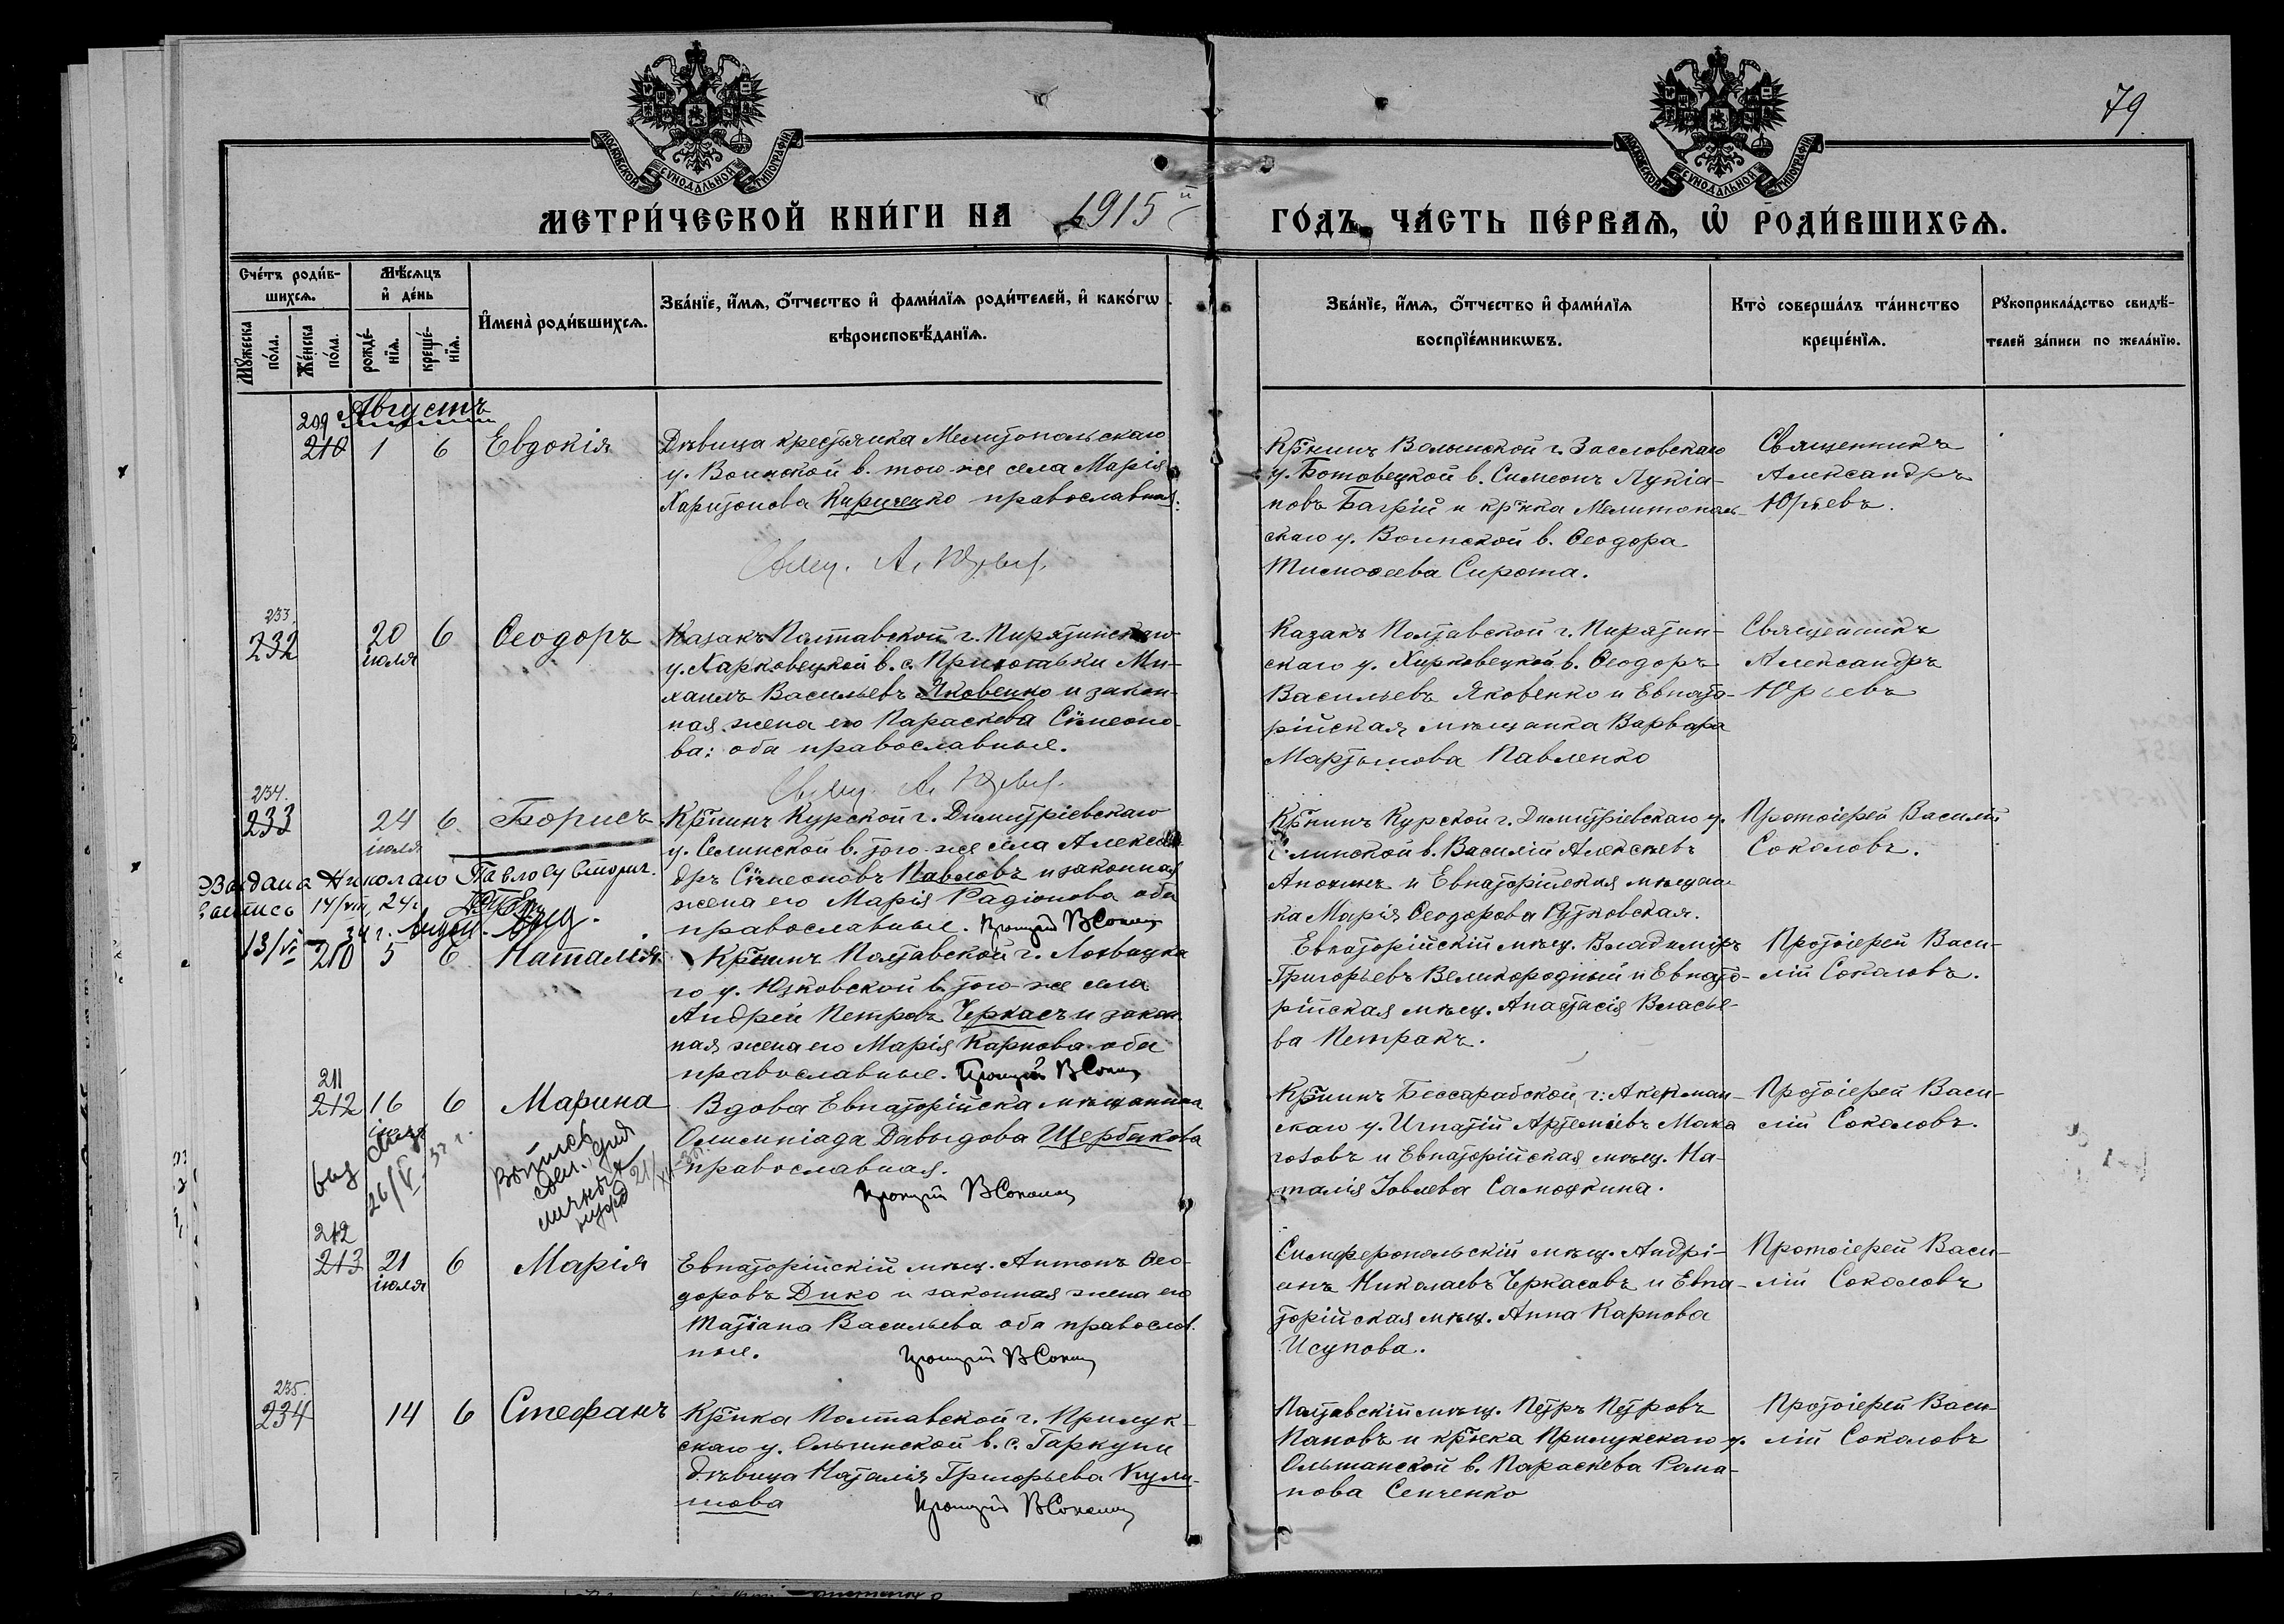 79
МОСКОВСКОЙ СѴНОДАЛЬНОЙ ТИПОГРАФІИ
МОСКОВСКОЙ СѴНОДАЛЬНОЙ ТИПОГРАФІИ
МЕТРИ́ЧЕСКОЙ КНИ́ГИ НА 1915й ГО́ДЪ, ЧА́СТЬ ПЕ́РВАѦ, Ѡ҆ РОДИ́ВШИХСѦ.
Сче́тъ роди́в-
шихсѧ.
Мꙋ́жеска по́ла.
Же́нска по́ла.
Мѣ́сѧцъ
и҆ де́нь
рожде́-
нїѧ.
креще́-
нїѧ.
И҆мена̀ роди́вшихсѧ.
Зва́нїе, и҆́мѧ, ѻ҆́тчество и҆ фами́лїѧ роди́телей, и҆ како́гѡ
вѣроисповѣ́данїѧ.
Зва́нїе, и҆́мѧ, ѻ҆́тчество и҆ фами́лїѧ
воспрїе́мникѡвъ.
Кто̀ соверша́лъ та́инство
креще́нїѧ.
Рꙋкоприкла́дство свидѣ́-
телей за́писи по жела́нїю.
Августъ
209
210 1 6 Евдокія
Дѣвица крестьянка Мелитопольскаго
у. Воинской в. того-же села Марія
Харитонова Кириченко православная.
Свящ. А. Юрьев.
Кр̃нинъ Волынской г. Засловскаго
у. Ботовецкой в. Симеонъ Лукіа-
новъ Багрій и кр̃нка Мелитополь-
скаго у. Воинской в. Ѳеодора
Тимоѳеева Сирота.
Священникъ
Александръ
Юрьевъ.
233
232 20 іюля 6 Ѳеодоръ
Казакъ Полтавской г. Пирятинскаго
у. Харковецкой в. с. Приготавки Ми-
хаилъ Васильевъ Яковенко и закон-
ная жена его Параскева Сѷмеоно-
ва: оба православные.
Свящ. А. Юрьев.
Казакъ Полтавской г. Пирятин-
скаго у. Харковецкой в. Ѳеодоръ
Васильевъ Яковенко и Евпато-
рійская мѣщанка Варвара
Мартынова Павленко
Священникъ
Александръ
Юрьевъ
234.
233 24 іюля 6 Борисъ
Кр̃нинъ Курской г. Димитріевскаго
у. Селинской в. того-же села Алексан-
дръ Сѷмеоновъ Павловъ и законная
жена его Марія Радіонова оба
православные. Протоіерей В Соколов
Кр̃нинъ Курской г. Димитріевскаго у.
Селинской в. Василій Алексѣевъ
Анохинъ и Евпаторійская мѣщан-
ка Марія Ѳеодорова Рутковская.
Протоіерей Василій
Соколовъ.
Выдана Николаю Павлову вторич.
запись 14/VIII, 24 г.
13/VI 34 г. выд.
210 5 6 Наталія
Кр̃нинъ Полтавской г. Лохвицка-
го у. Юсковской в. того-же села
Андрей Петровъ Черкасъ и закон.
ная жена его Марія Карпова оба
православные. Протоіерей В Соколов
Евпаторійскій мѣщ. Владиміръ
Григорьевъ Великородный и Евпато-
рійская мѣщ. Анастасія Власье-
ва Петракъ.
Протоіерей Васи-
лій Соколовъ.
211
212 16 6 Марина
Вдова Евпаторійска мѣщанка
Олимпіада Давыдова Щербакова
православная.
Протоіерей В Соколов
Кр̃нинъ Бессарабской г. Аккерман-
скаго у. Игнатій Артеміевъ Мака-
готовъ и Евпаторійская мѣщ. На-
талія Іовлева Самошкина.
Протоіерей Васи-
лій Соколовъ.
выд
26/V 37 г.
212
213 21 іюля 6 Марія
Евпаторійскій мѣщ. Антонъ Ѳео-
доровъ Дико и законная жена его
Татіана Васильева оба православ.
ные. Протоіерей В Соколов
Симферопольскій мѣщ. Андрі-
анъ Николаевъ Черкасовъ и Евпа-
торійская мѣщ. Анна Карпова
Исупова.
Протоіерей Васи-
лій Соколовъ
235.
234 14 6 Стефанъ
Кр̃нка Полтавской г. Прилук-
скаго у. Ольшинской в. с. Гаркуши
дѣвица Наталія Григорьева Кули-
шова Протоіерей В Соколов
Полтавскій мѣщ. Петръ Петровъ
Пановъ и кр̃нка Прилукскаго у.
Ольшанской в. Параскева Рома-
нова Сенченко
Протоіерей Васи-
лій Соколовъ